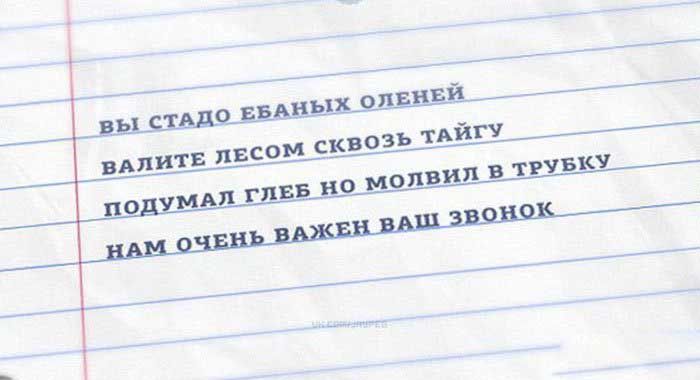 ВЫ СТАДО ЕБАНЫХ ОЛЕНЕЙ
ВАЛИТЕ ЛЕСОМ СКВОЗЬ ТАЙГУ
ПОДУМАЛ ГЛЕБ НО МОЛВИЛ В ТРУБКУ
НАМ ОЧЕНЬ ВАЖЕН ВАШ ЗВОНОК